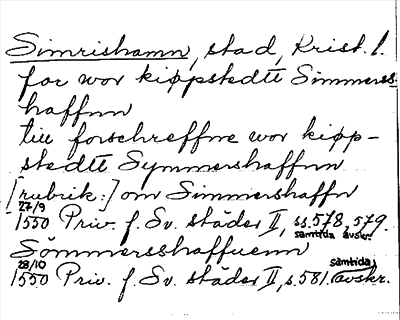 Simrishamn, stad, Krist. l.
for wor kiøppstedtt Simmerss-
haffnn
till forschreffne wor kiøp-
stedtt Symmershaffnn
[rubrik:] om Simmershaffn
27/9
1550 Priv. f. Sv. städer II, ss. 578, 579.
samtida avskr.
Sömmersshaffuenn
28/10 samtida
1550 Priv. f. Sv. städer II, s. 581. avskr.